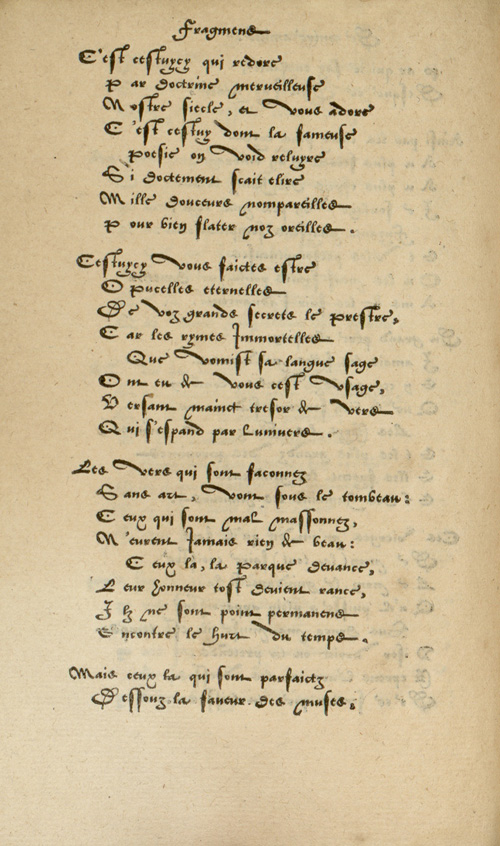 Fragmens
C'est cestuycy qui redore
Par doctrine merveilleuse
Nostre siecle, et vous adore
C'est cestuy dont la fameuse
Poesie on void reluyre
Si doctement scait elire
Mille douceurs nompareilles
Pour bien flater noz oreilles.
Cestuycy vous faictes estre
O pucelles eternelles
De voz grands secrets le prestre,
Car les rymes Immortelles
Que vomist sa langue sage
Ont eu de vous cest vsage,
Versant mainct tresor de vers
Qui s'espand par Lunivers.
Les vers qui sont faconnez
Sans art, vont sous le tombeau:
Ceux qui sont mal massonnez,
N'eurent Jamais rien de beau:
Ceux la, la Parque devance,
Leur honneur tost devient rance,
Ilz ne sont point permanens
Encontre le hurt du temps.
Mais ceux la qui sont parfaictz
Dessouz la faveur des muses,